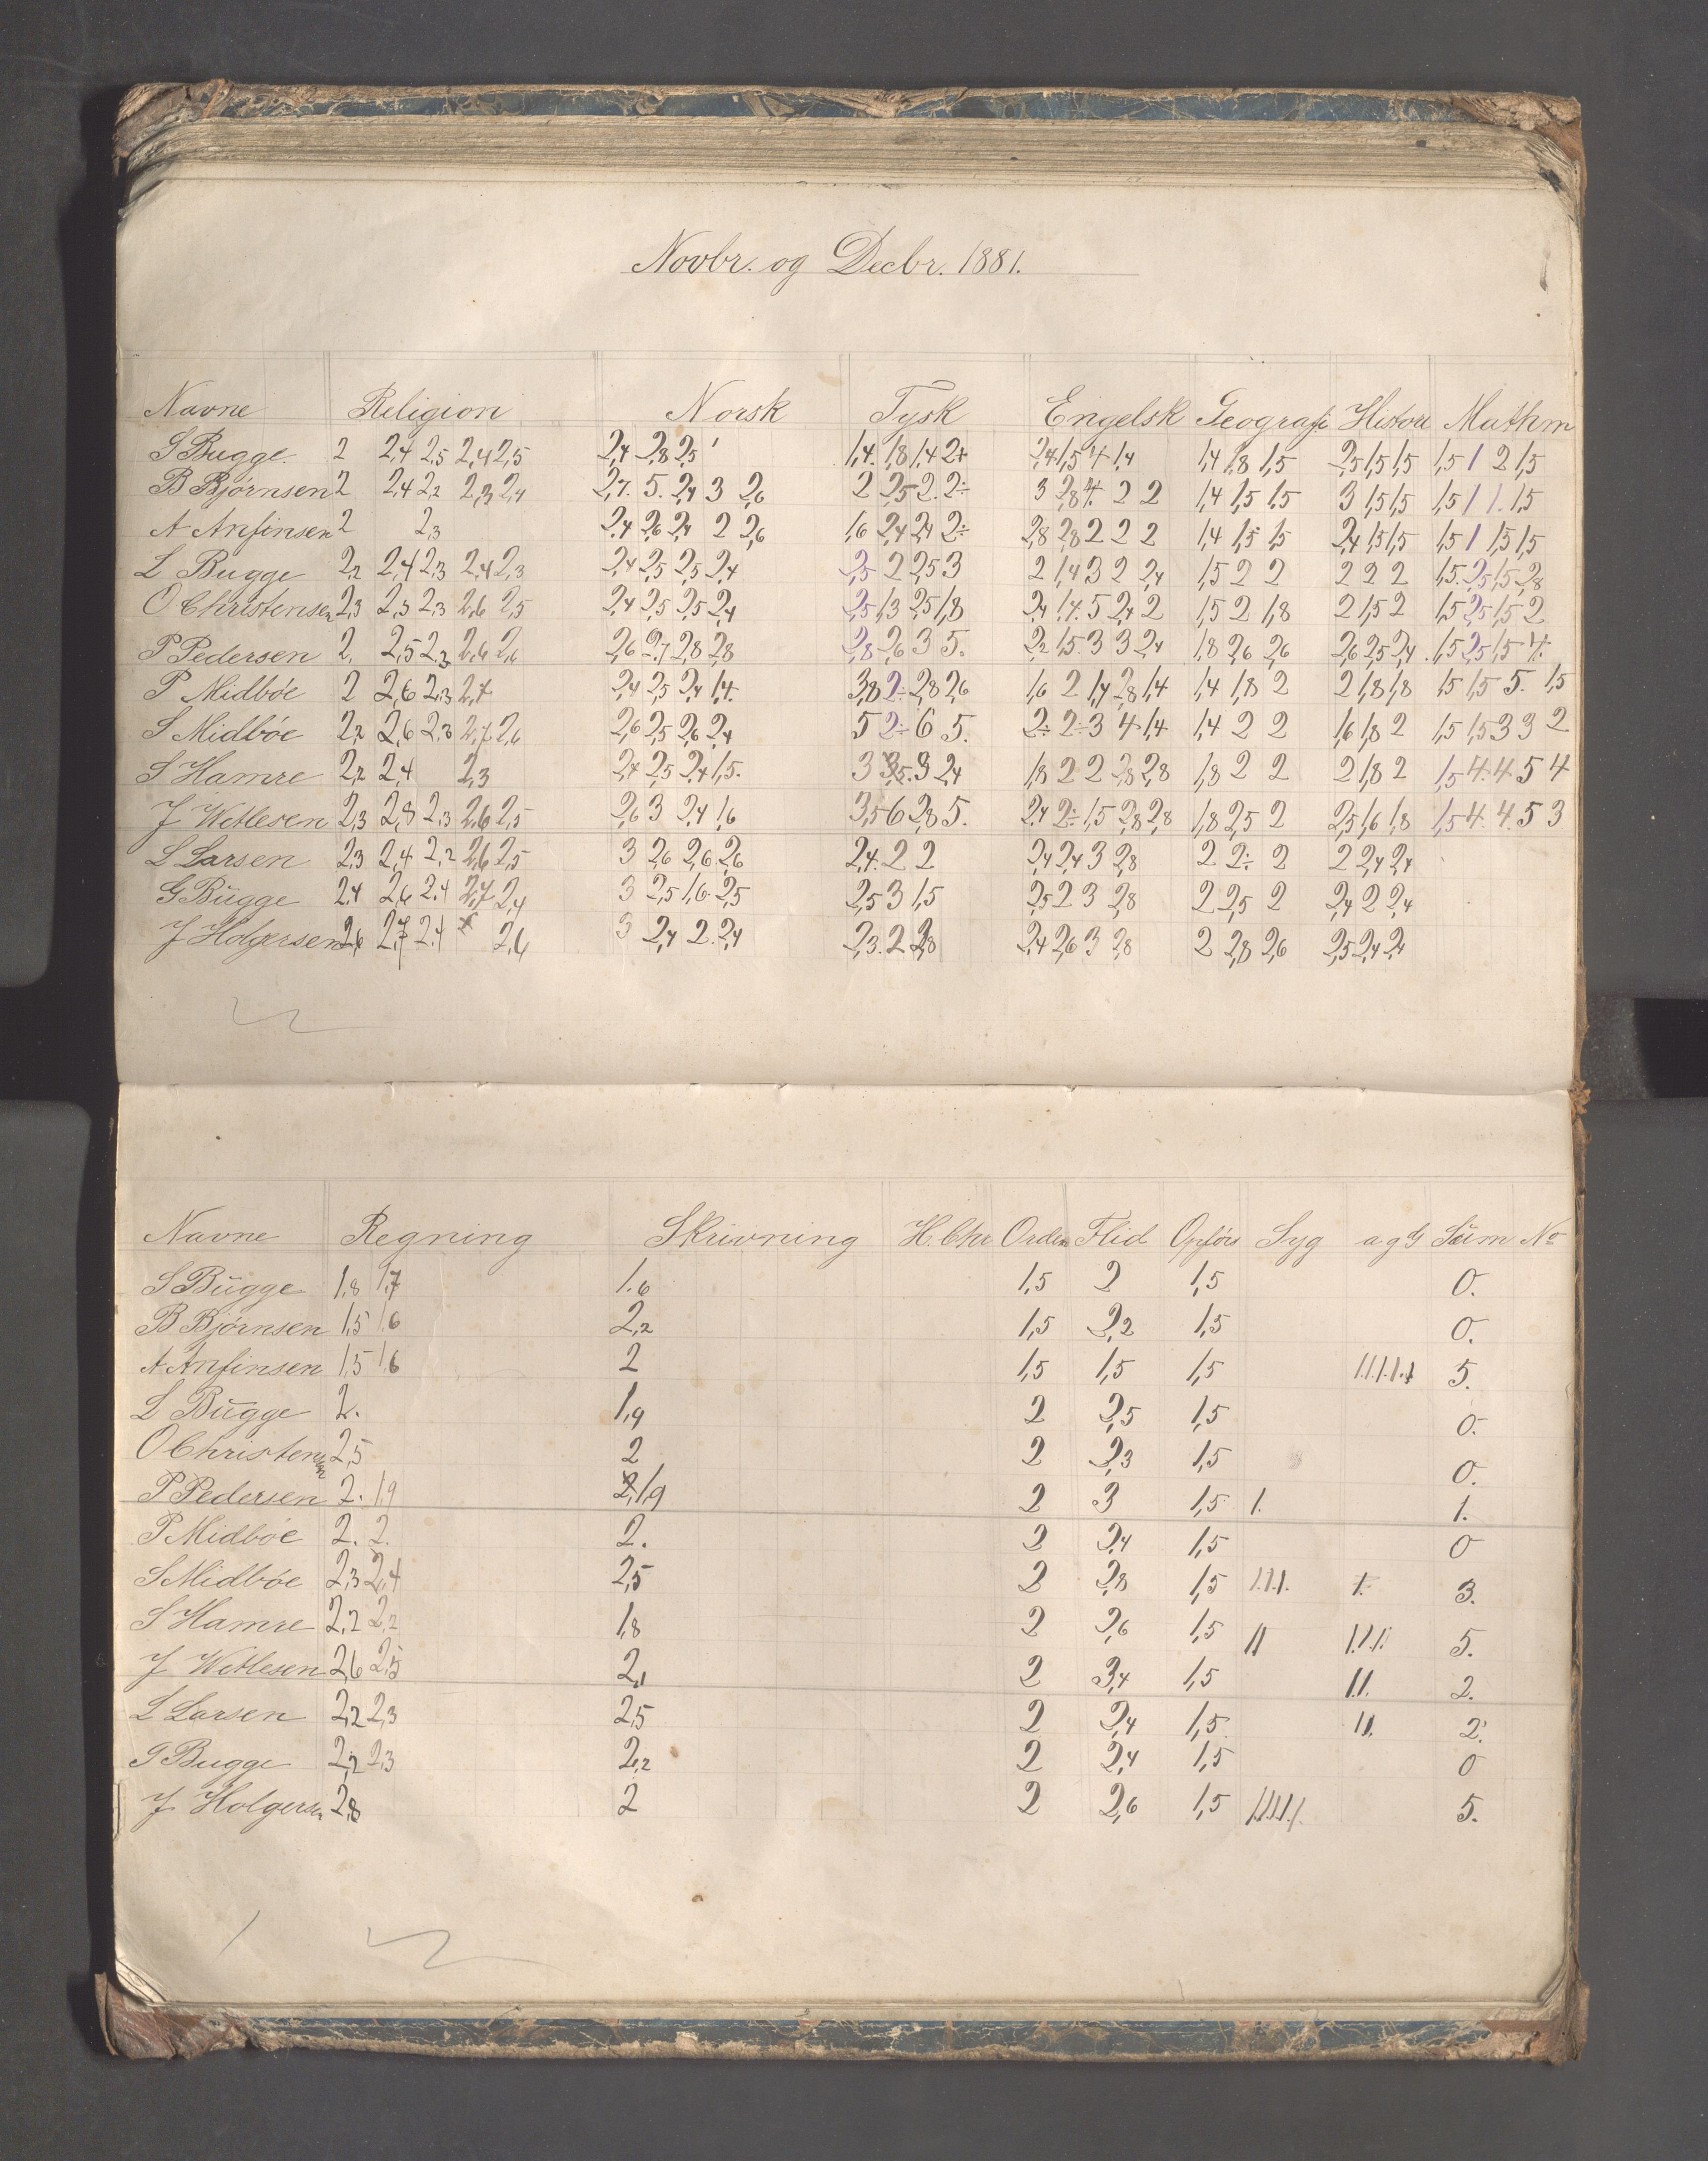 Novbr. og Decbr. 1881.
Navne Religion Norsk Tysk Engelsk Geografi Histori Mathm
S Bugge. 2 2,4 2,5 2,4 2,5 2,4 2,8 2,5 1,4. 1,8 1,4 2+ 2,4 1,5 4 1,4 1,4 1,8 1,5 2,5 1,5 1,5 1,5 1 2 1,5
B Bjørnsen 2 2,4 2,2 2,3 2,4 2,7. 5. 2,4 3 2,6 2 2,5 2. 2÷ 3 2,8 4. 2 2 1,4 1,5 1,5 3 1,5 1,5 1,5 1 1. 1,5
A Anfinsen 2 2,3 2,4 2,6 2,4 2 2,6 1,6 2,4 2,4 2÷ 2,8 2,8 2 2 2 1,4 1,5 1,5 2,4 1,5 1,5 1,5 1 1,5 1,5
L Bugge 2,2 2,4 2,3 2,4 2,3 2,4 2,5 2,5 2,4 2,5 2 2,5 3 2 1,4 3 2 2,4 1,5 2 2 2 2 2 1,5. 2,5 1,5 2,8
O Christensen 2,3 2,3 2,3 2,6 2,5 2,4 2,5 2,5 2,4 2,5 1,3 2,5 1,8 2,4 1,4. 5 2,4 2 1,5 2 1,8 2 1,5 2 1,5 2,5 1,5 2
P Pedersen 2, 2,5 2,3 2,6 2,6 2,6 2,7 2,8 2,8 2,8 2,6 3 5. 2,2 1,5. 3 3 2,4 1,8 2,6 2,6 2,6 2,5 2,4 1,5 2,5 1,5 4.
P Midbøe 2 2,6 2,3 2,7 2,4 2,5 2,4 1,4. 3,8 2÷ 2,8 2,6 1,6 2 1,4 2,8 1,4 1,4 1,8 2 2 1,8 1,8 1,5 1,5 5. 1,5
S Midbøe 2,2 2,6 2,3 2,7 2,6 2,6 2,5 2,6 2,4 5 2÷ 6 5. 2÷ 2÷ 3 4 1,4 1,4 2 2 1,6 1,8 2 1,5 1,5 3 3 2
S Hamre 2,2 2,4 2,3 2,4 2,5 2,4 1,5. 3 3,5. 3 2,4 1,8 2 2 2,8 2,8 1,8 2 2 2 1,8 2 1,5 4. 4 5 4
J Wetlesen 2,3 2,8 2,3 2,6 2,5 2,6 3 2,4 1,6 3,5 6 2,8 5. 2,4 2÷ 1,5 2,8 2,8 1,8 2,5 2 2,5 1,6 1,8 1,5 4. 4. 5 3
L Larsen 2,3 2,4 2,2 2,6 2,5 3 2,6 2,6 2,6 2,4. 2 2 2,4 2,4 3 2,8 2 2÷ 2 2 2,4 2,4
G Bugge 2,4 2,6 2,4 2,7 2,4 3 2,5 1,6. 2,5 2,5 3 1,5 2,5 2 3 2,8 2 2,5 2 2,4 2 2,4
J Holgersen 2,6 2,7 2,4 2,6 3 2,4 2. 2,4 2,3. 2 2,8 2,4 2,6 3 2,8 2 2,8 2,6 2,5 2,4 2,4
Navne Regning Skrivning H. Chr Orden Flid Opførs Syg a g G Sum No
S Bugge 1,8 1,7 1,6 1,5 2 1,5 0.
B Bjørnsen 1,5 1,6 2,2 1,5 2,2 1,5 0.
A Anfinsen 1,5 1,6 2 1,5 1,5 1,5 1.1.1.1.1 5.
L Bugge 2. 1,9 2 2,5 1,5 0.
O Christensen 2,5 2 2 2,3 1,5 0.
P Pedersen 2. 1,9 2, 1,9 2 3 1,5 1. 1.
P Midbøe 2. 2. 2. 2 2,4 1,5 0
S Midbøe 2,3 2,4 2,5 2 2,8 1,5 1.1.1. 1. 3.
S Hamre 2,2 2,2 1,8 2 2,6 1,5 11 1.1.1. 5.
J Wetlesen 2,6 2,5 2,1 2 3,4 1,5 1.1. 2.
L Larsen 2,2 2,3 2,5 2 2,4 1,5 11. 2.
G Bugge 2,2 2,3 2,2 2 2,4 1,5 0
J Holgersen 2,8 2 2 2,6 1,5 1.1.1.1.1. 5.